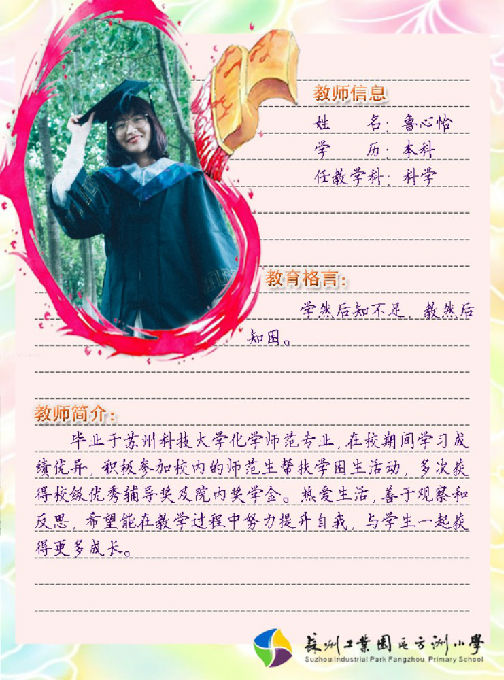 教师信息
姓　　名：鲁心怡
学　　历：本科
任教学科：科学
教育格言：
学然后知不足，教然后
知困。
教师简介：
毕业于苏州科技大学化学师范专业，在校期间学习成
绩优异，积极参加校内的师范生帮扶学困生活动，多次获
得校级优秀辅导奖及院内奖学金。热爱生活，善于观察和
反思，希望能在教学过程中努力提升自我，与学生一起获
得更多成长。
苏州工业园区方洲小学
Suzhou Industrial Park Fangzhou Primary School